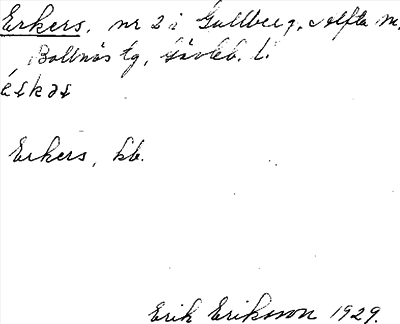 Erkers, nr 2 i Gullberg, Alfta sn,
Bollnäs tg, Gävleb. l.
éskəs
Erkers, kb.
Erik Eriksson 1929.